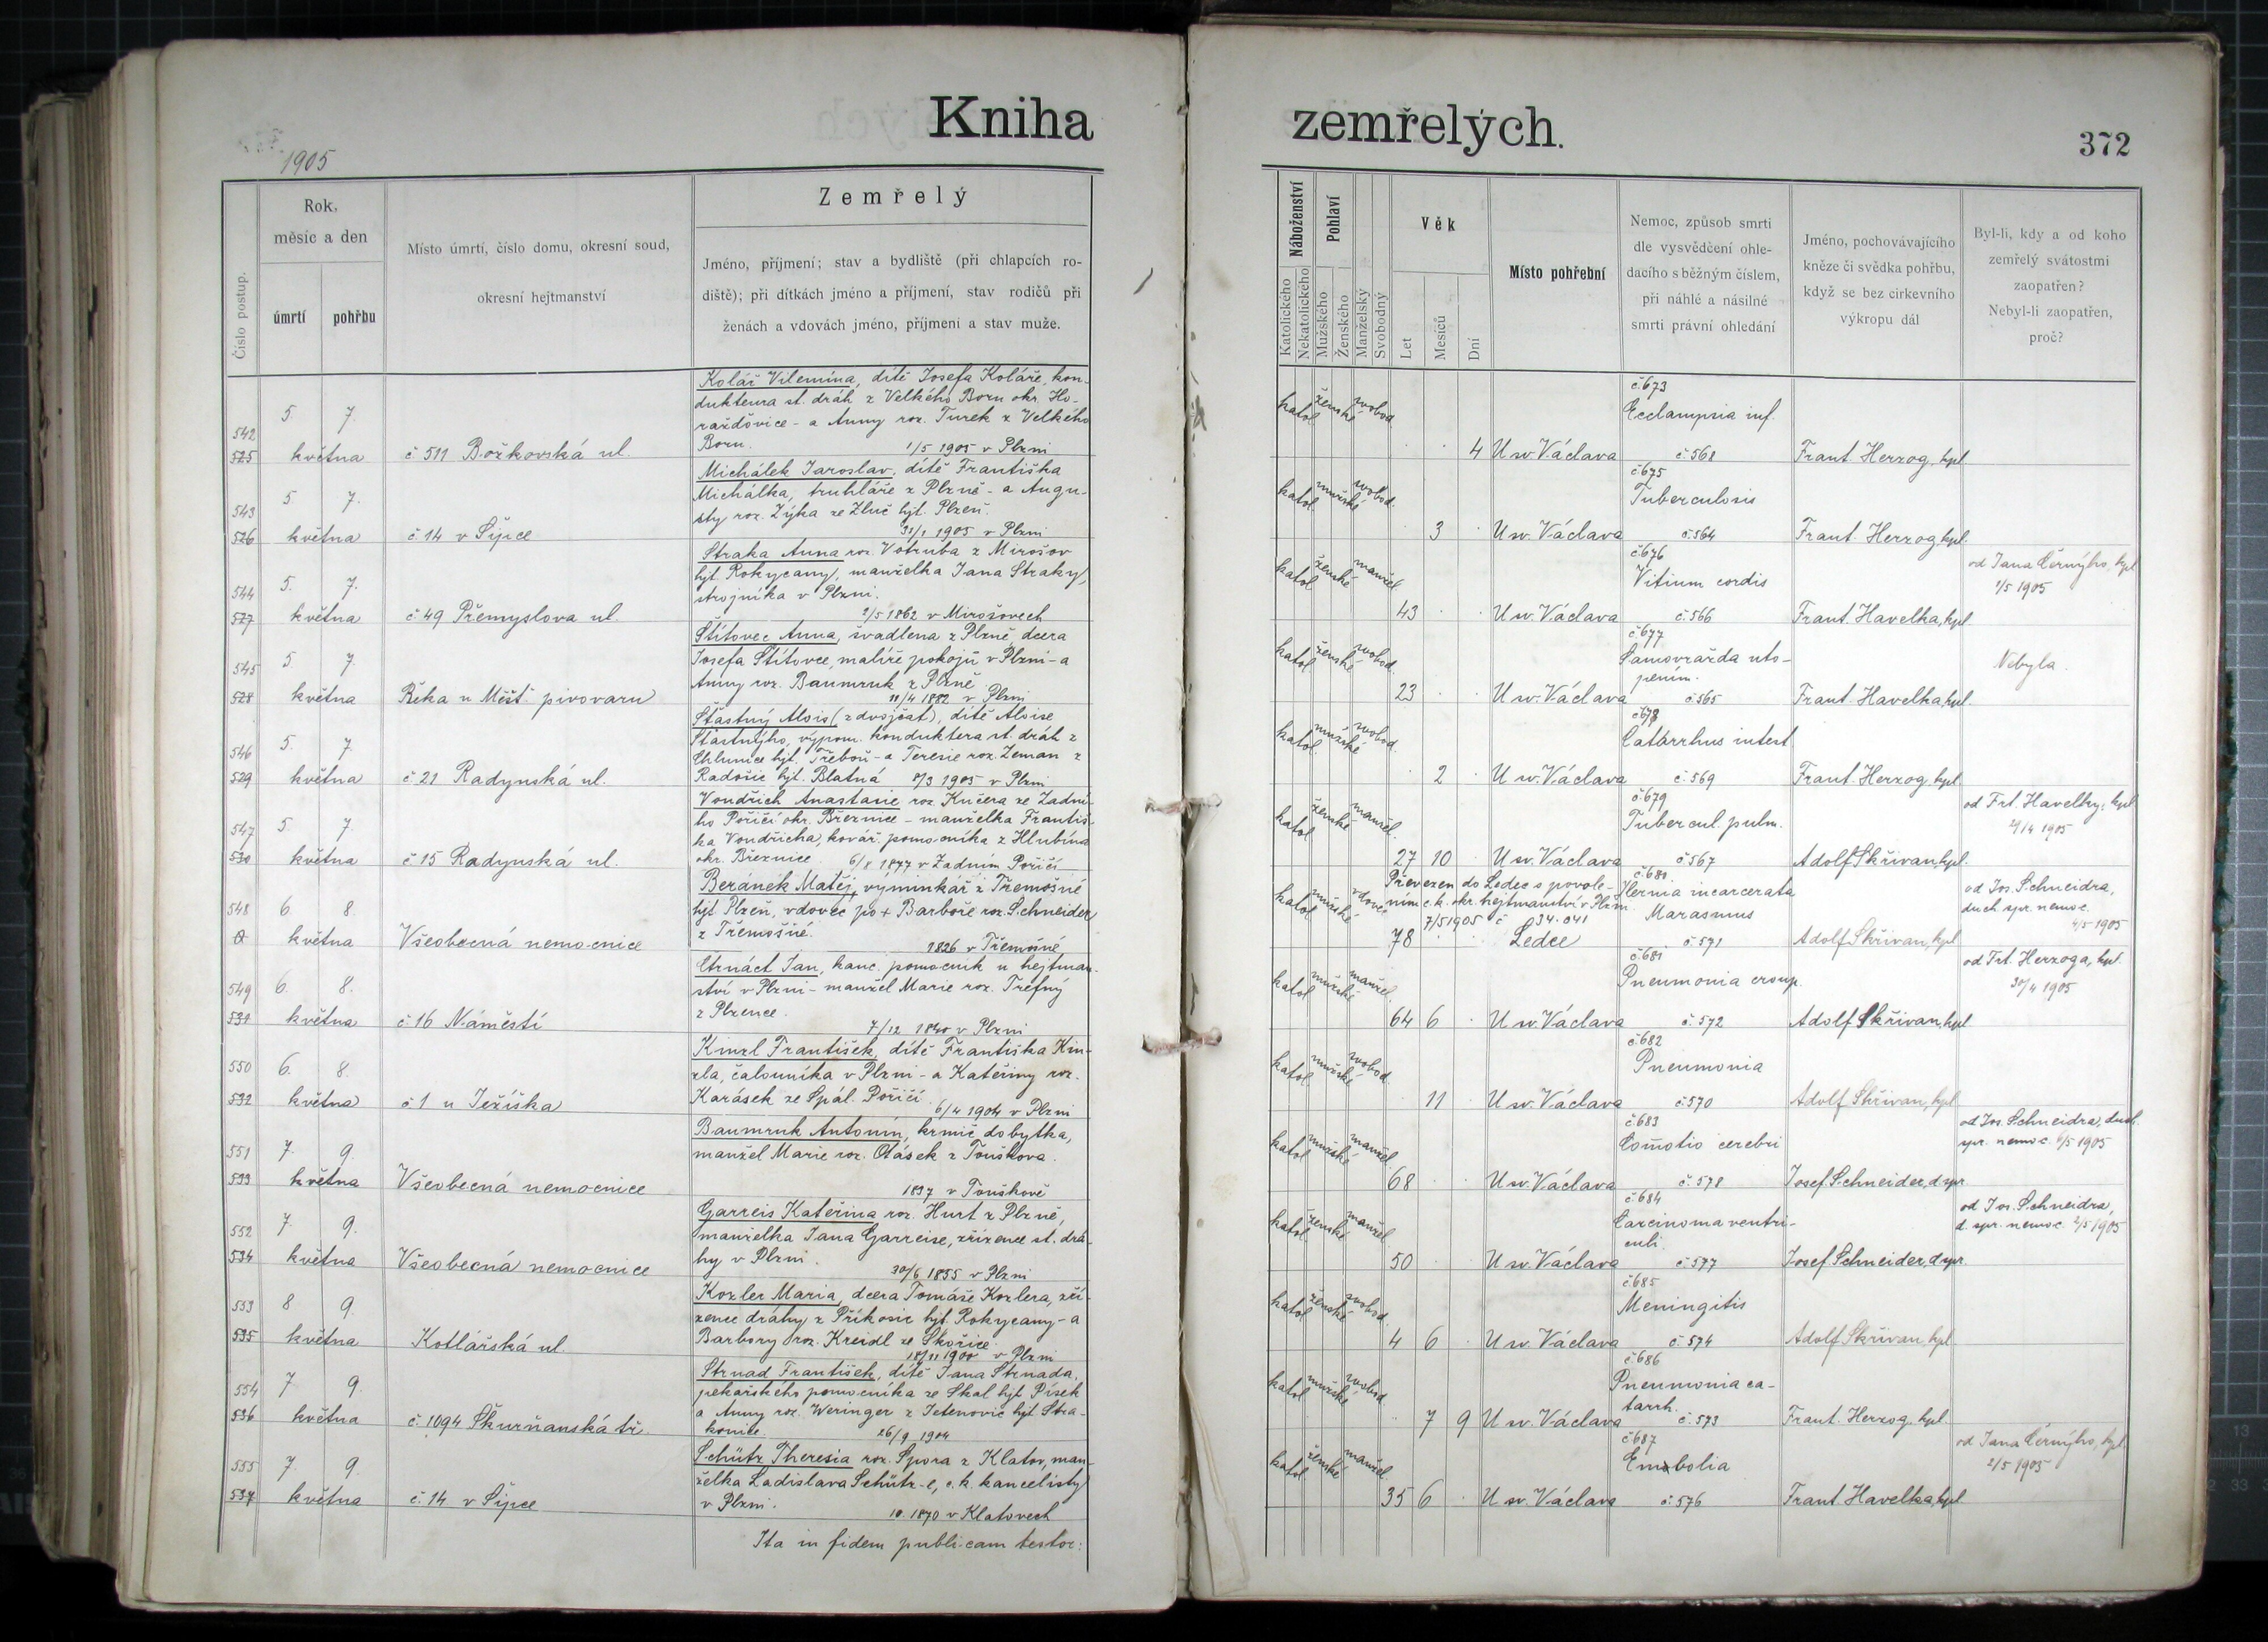 Kniha
zemřelých.
372
1905
Číslo postup.
Rok,
měsíc a den
úmrtí
pohřbu
Místo úmrtí, číslo domu, okresní soud,
okresní hejtmanství
Zemřelý
Jméno, příjmení; stav a bydliště (při chlapcích ro-
diště); při dítkách jméno a příjmení, stav rodičů při
ženách a vdovách jméno, příjmení a stav muže.
Náboženství
Katolického
Nekatolického
Pohlaví
Mužského
Ženského
Manželský
Svobodný
Věk
Let
Měsíců
Dní
Místo pohřební
Nemoc, způsob smrti
dle vysvědčení ohle-
dacího s běžným číslem,
při náhlé a násilné
smrti právní ohledání
Jméno, pochovávajícího
kněze či svědka pohřbu,
když se bez cirkevního
výkropu dál
Byl-li, kdy a od koho
zemřelý svátostmi
zaopatřen?
Nebyl-li zaopatřen,
proč?
542
525
5 7.
května
č 511 Božkovská ul.
Kolář Vilemína, dítě Josefa Koláře, kon-
dukteura st. dráh z Velkého Boru okr. Ho-
ražďovice - a Anny roz. Turek z Velkého
Boru. 1/5 1905 v Plzni
katol. ženské svobod.
4 U sv. Václava
č 673
Ecclampsia inf.
č 568
Frant. Herzog, kpl.
543
526
5 7.
května
č 14 v Šípce
Michálek Jaroslav, dítě Františka
Michálka, truhláře z Plzně - a Augu-
sty roz. Zýka ze Zluč hjt. Plzeň.
31/1 1905 v Plzni
katol. mužské svobod.
3 U sv. Václava
č 675
Tuberculosis
č 564
Frant. Herzog kpl.
544
527
5. 7.
května
č 49 Přemyslova ul.
Straka Anna roz. Votruba z Mirošov
hjt. Rokycany, manželka Jana Straky,
strojníka v Plzni.
2/5 1862 v Mirošovech
katol. ženské manžel.
43 U sv. Václava
č 676
Vitium cordis
č. 566
Frant. Havelka, kpl
od Jana Černýho, kpl
1/5 1905
545
528
5 7.
května
Řeka u Měšť. pivovaru
Štítovec Anna, švadlena z Plzně, dcera
Josefa Štítovce, malíře pokojů v Plzni - a
Anny roz. Baumruk z Plzně
11/4 1882 v Plzni
katol. ženské svobod.
23 U sv. Václava
č 677
Samovražda uto-
pením.
č. 565
Frant. Havelka, kpl.
Nebyla.
546
529
5. 7.
května
č 21 Radynská ul.
Šťastný Alois (z dvojčat), dítě Aloise
Šťastnýho, výpom. konduktera st. dráh z
Chlumce hjt. Třeboň - a Teresie roz. Zeman z
Radošic hjt. Blatná 8/3 1905 v Plzni
katol. mužské svobod.
2 U sv. Václava
č 678
Catarrhus intest
č. 569
Frant. Herzog, kpl
547
530
5. 7.
května
č 15 Radynská ul.
Vondřich Anastasie roz. Kučera ze Zadní-
ho Poříčí okr. Březnice - manželka Františ-
ka Vondřicha, kovář. pomocníka z Hlubína
okr. Březnice. 6/8 1877 v Zadním Poříčí
katol. ženské manžel.
27 10 U sv. Václava
č 679
Tubercul. pulm.
č 567
Adolf Skřivan, kpl.
od Frt. Havelky, kpl
29/4 1905
548
6. 8.
května
Všeobecná nemocnice
Beránek Matěj, výminkář z Třemošné
hjt. Plzeň, vdovec po + Barboře roz. Schneider
z Třemošné.
1826 v Třemošné
katol. mužské vdovec
Převezen do Ledec s povole-
ním c. k. okr. hejtmanství v Plzni
7/5 1905 č 34.041
78 Ledce
č. 680
Hernia incarcerata
Marasmus
č 571
Adolf Skřivan, kpl
od Jos. Schneidra,
duch. spr. nemoc.
4/5 1905
549
531
6. 8.
května
č. 16 Náměstí
Čtrnáct Jan, kanc. pomocník u hejtman-
ství v Plzni - manžel Marie roz. Trefný
z Plzence.
7/12 1840 v Plzni
katol. mužské manžel.
64 6 U sv. Václava
č. 681
Pneumonia croup.
č. 572
Adolf Skřivan, kpl
od Frt. Herzoga, kpl.
30/4 1905
550
532
6. 8.
května
č 1 u Ježíška
Kinzl František, dítě Františka Kin-
zla, čalouníka v Plzni - a Kateřiny roz.
Karásek ze Spál. Poříčí.
6/4 1904 v Plzni
katol. mužské svobod.
11 U sv. Václava
č. 682
Pneumonia
č. 570
Adolf Skřivan, kpl
551
533
7. 9.
května
Všeobecná nemocnice
Baumruk Antonín, krmič dobytka,
manžel Marie roz. Otásek z Touškova.
1837 v Touškově
katol. mužské manžel.
68 U sv. Václava
č 683
Com̄otio cerebri
č. 578
Josef Schneider, d spr
od Jos. Schneidra, duch.
spr. nemoc. 6/5 1905
552
534
7. 9.
května
Všeobecná nemocnice
Garreis Kateřina roz. Hurt z Plzně,
manželka Jana Garreise, zřízence st. drá-
hy v Plzni.
30/6 1855 v Plzni
katol. ženské manžel.
50 U sv. Václava
č 684
Carcinoma ventri-
culi.
č. 577
Josef Schneider, d spr.
od Jos. Schneidra,
d. spr. nemoc. 2/5 1905
553
535
8 9.
května
Kotlářská ul.
Kozler Maria, dcera Tomáše Kozlera, zří-
zence dráhy z Příkosic hjt. Rokycany - a
Barbory roz. Kreidl ze Skořice.
18/11 1900 v Plzni
katol. ženské svobod.
4 6 U sv. Václava
č 685
Meningitis
č. 574
Adolf Skřivan, kpl
554
536
7 9.
května
č. 1094 Škurňanská tř.
Strnad František, dítě Jana Strnada,
pekařského pomocníka ze Skal hjt Písek
a Anny roz. Weringer z Jetenovic hjt. Stra-
konice. 26/9 1904
katol. mužské svobod.
7 9 U sv. Václava
č 686
Pneumonia ca-
tarrh.
č. 573
Frant. Herzog, kpl.
555
537
7. 9.
května
č. 14 v Šípce
Schütz Theresia roz. Spora z Klatov, man-
želka Ladislava Schütz-e, c. k. kancelisty
v Plzni.
10. 1870 v Klatovech
katol. ženské manžel.
35 6 U sv. Václava
č 687
Embolia
č. 576
Frant. Havelka, kpl
od Jana Černýho, kpl.
2/5 1905
Ita in fidem publicam testor: